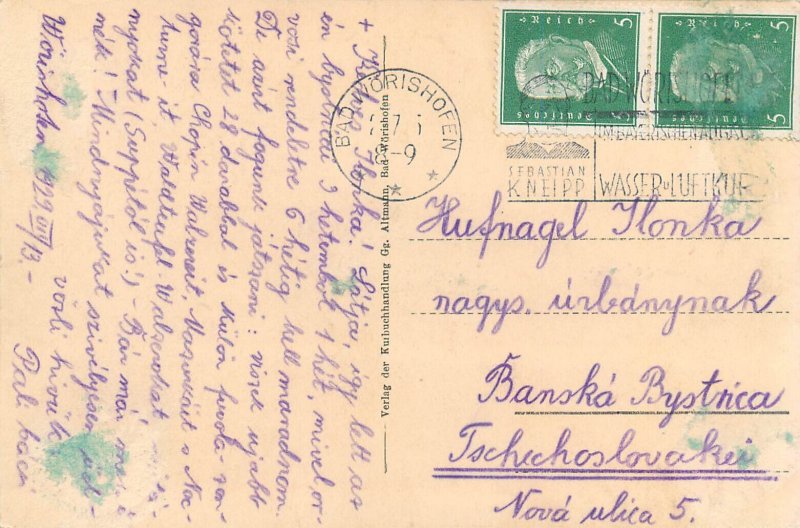 + Kedves Ilonka! Látja, így lett az
én bystricai 3 hetemből 1 hét, mivel or-
vosi rendeletre 6 hétig kell maradnom.
De azért fogunk játszani: viszek újabb
kötetet 28 darabbal és külön
Chopin Walzereit, Mazurkáit s Noc-
turne-it Waldteufel-Walzereket
(Suppétól is!) - Bár már
Mindnyájukat szívélyesen üd-
vözli hívük
Pali bácsi
Wörishofen 1929 VII/13 -
Verlag der Kurbuchhandlung Gg. Altmann, Bad Wörishofen
BAD WÖRISHOFEN
8-9
Deutsches Reich 5
Deutsches Reich 5
BAD WÖRISHOFEN
IM BAYERISCHEN ALLGÄU
SEBASTIAN
KNEIPP
WASSER u LUFTKUR
Hufnagel Ilonka
nagys. úrbánynak
Banská Bystrica
Tschechoslovakei
Nová ulica 5.